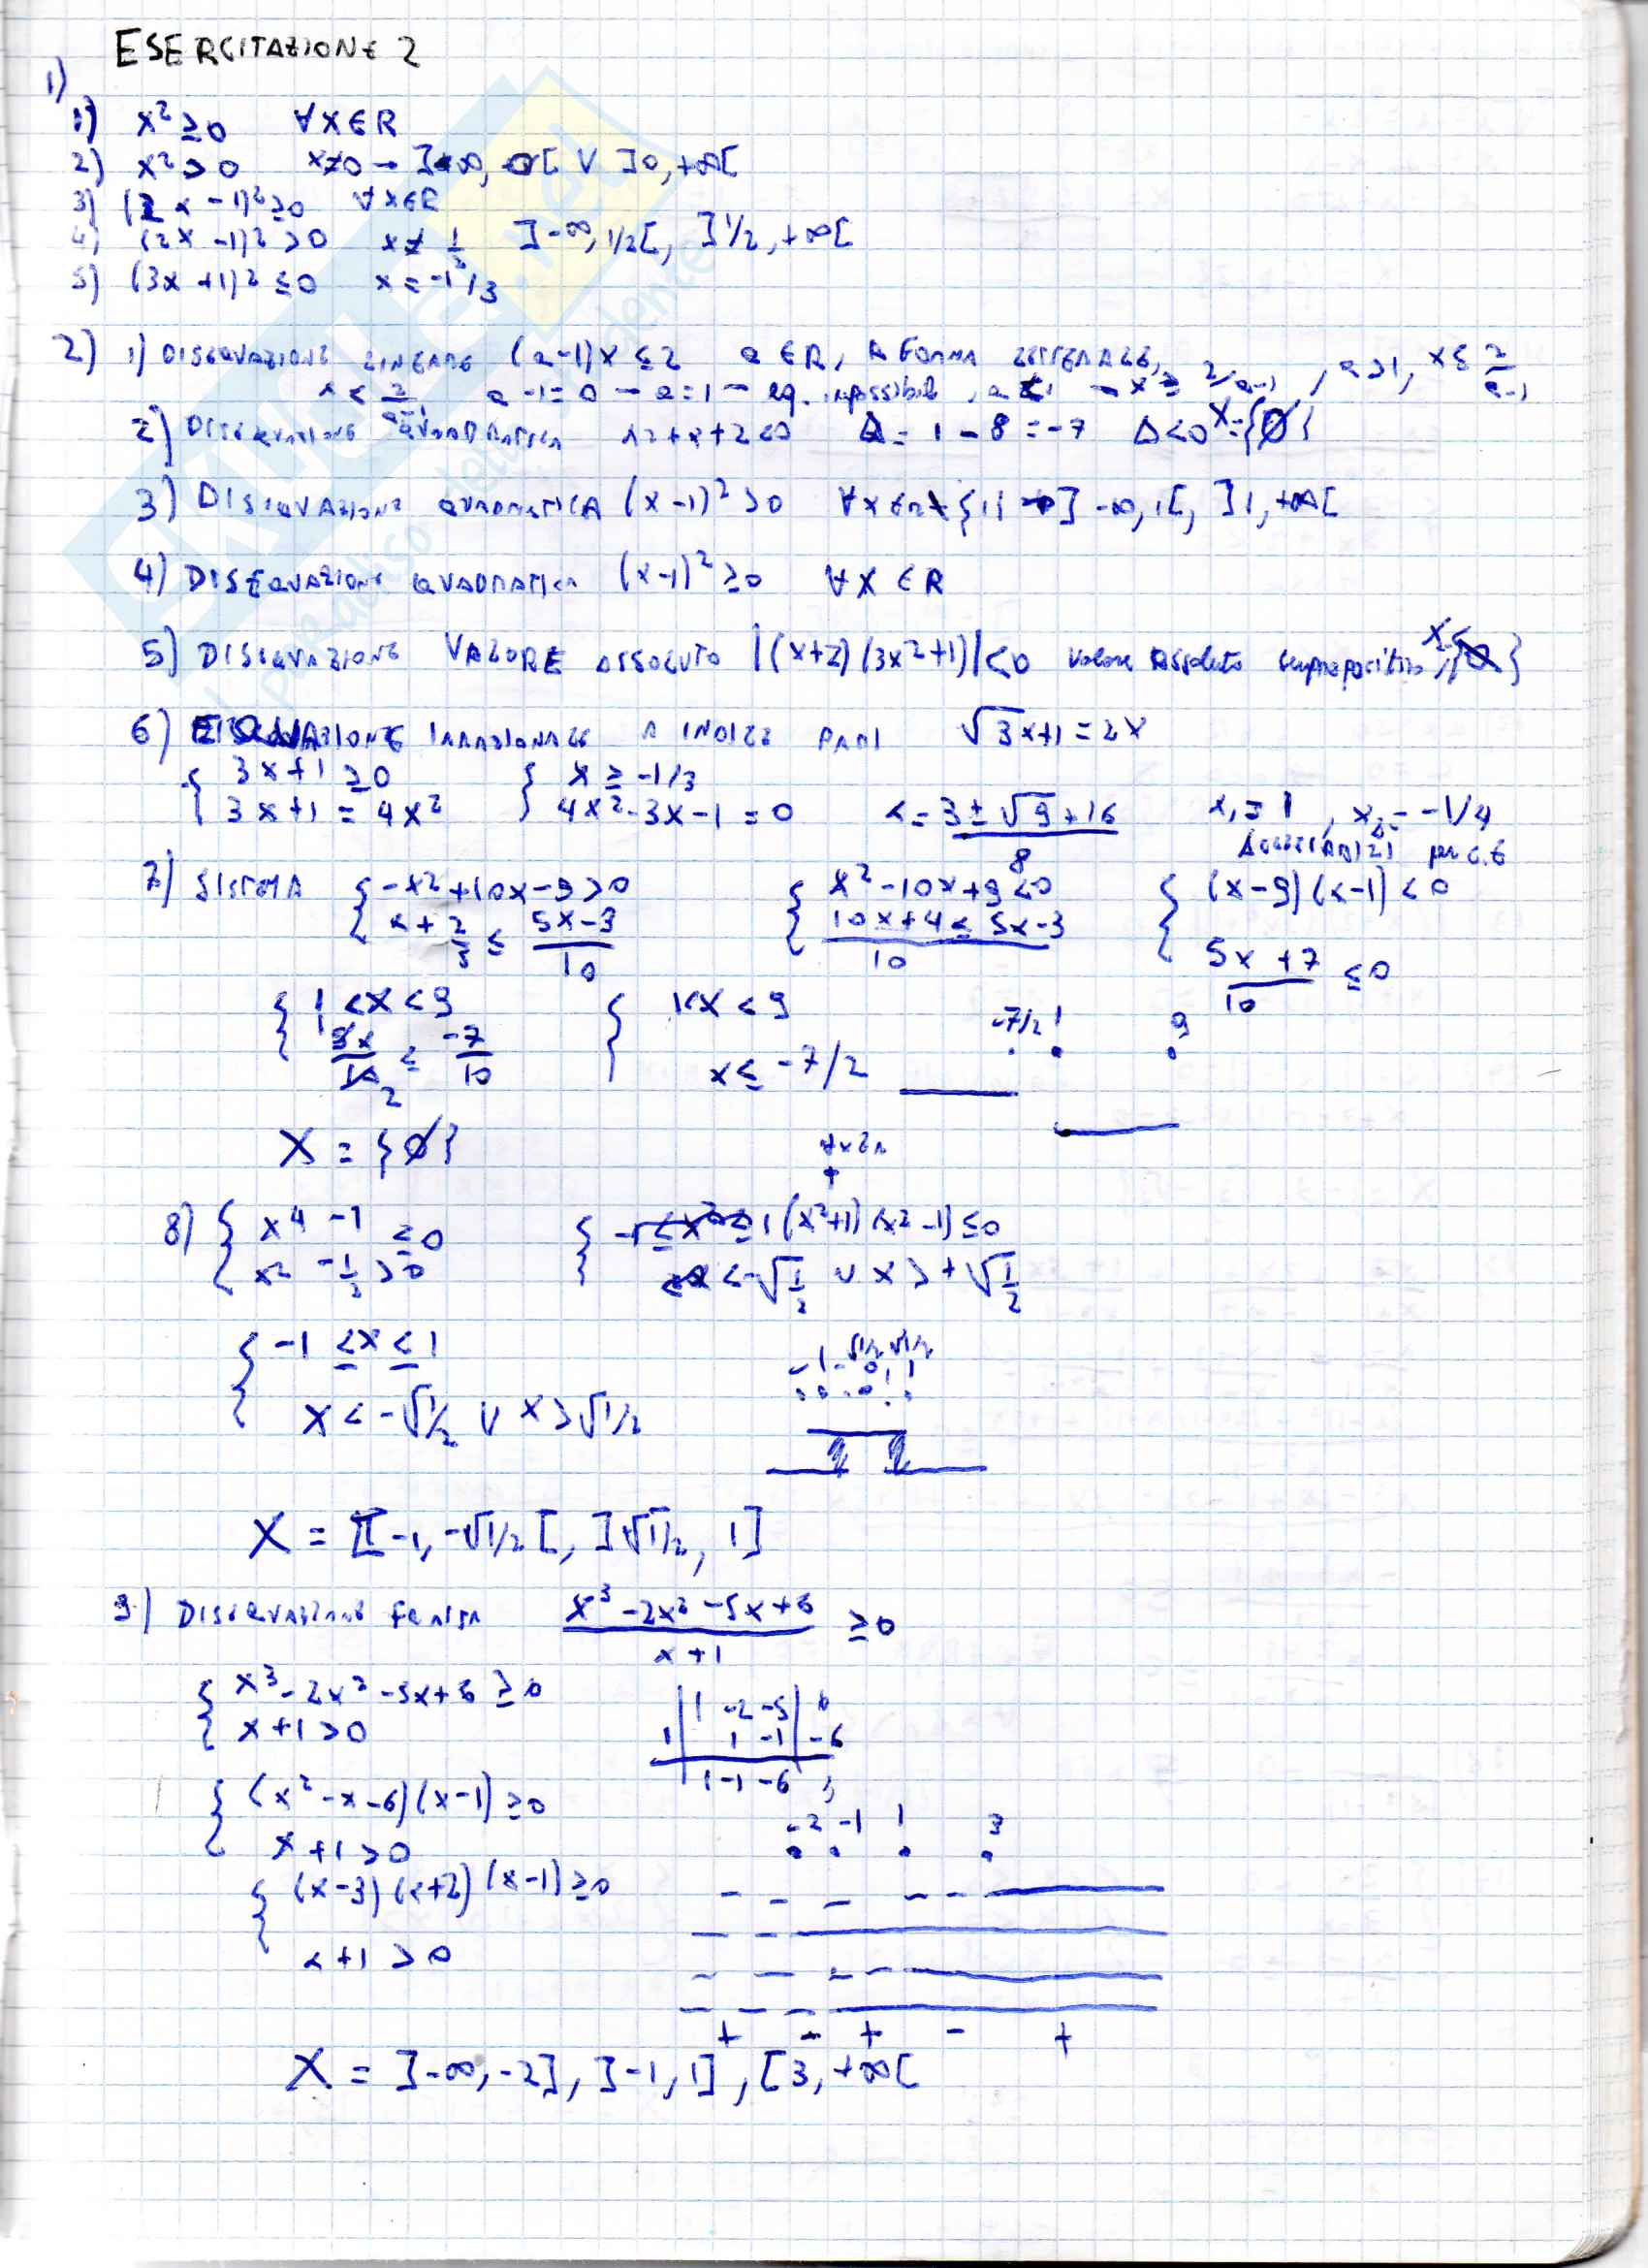 ESERCITAZIONE 2
1)
1) x² ≥ 0 ∀x∈R
2) x² > 0 x≠0 → ]-∞, 0[ ∨ ]0, +∞[
3) (2x-1)² ≥ 0 ∀x∈R
4) (2x-1)² > 0 x ≠ 1/2 ]-∞, 1/2[, ]1/2, +∞[
5) (3x+1)² ≤ 0 x = -1/3
2) 1) DISEQUAZIONE LINEARE (a-1)x ≤ 2 a∈R, A FORMA LETTERALE,
x ≤ 2/a-1 a-1=0 → a=1 → eq. impossibile, a<1 → x ≥ 2/a-1, a>1, x ≤ 2/a-1
2) DISEQUAZIONE QUADRATICA x²+x+2<0 Δ = 1-8 = -7 Δ<0 X={∅}
3) DISEQUAZIONE QUADRATICA (x-1)² > 0 ∀x∈R\{1} → ]-∞, 1[, ]1, +∞[
4) DISEQUAZIONE QUADRATICA (x-1)² ≥ 0 ∀x∈R
5) DISEQUAZIONE VALORE ASSOLUTO |(x+2)(3x²+1)|<0 valore assoluto sempre positivo, X={∅}
6) EQUAZIONE IRRAZIONALE A INDICE PARI √3x+1 = 2x
{ 3x+1 ≥ 0 { x ≥ -1/3
3x+1 = 4x² 4x²-3x-1 = 0 x = 3±√9+16 / 8 x₁ = 1, x₂ = -1/4
ACCETTABILI per C.E
7) SISTEMA { -x²+10x-9>0 { x²-10x+9<0 { (x-9)(x-1)<0
x+2/5 ≤ 5x-3/10 10x+4 ≤ 5x-3 / 10 5x+7/10 ≤ 0
{ 1<x<9 { 1<x<9 -7/2 1 9
5x/10 2 ≤ -7/10 x ≤ -7/2
X = {∅}
∀x∈R
8) { x⁴-1 ≤ 0 { (x²+1)(x²-1) ≤ 0
x²-1/2 > 0 x < -√1/2 ∨ x > +√1/2
{ -1 ≤ x ≤ 1 -1 -√1/2 0 √1/2 1
x < -√1/2 ∨ x > √1/2
X = [-1, -√1/2[, ]√1/2, 1]
9) DISEQUAZIONE FRATTA x³-2x²-5x+6 / x+1 ≥ 0
{ x³-2x²-5x+6 ≥ 0 | 1 -2 -5 | 6
x+1>0 1 | 1 -1 | -6
| 1 -1 -6
{ (x²-x-6)(x-1) ≥ 0 -2 -1 1 3
x+1>0
{ (x-3)(x+2)(x-1) ≥ 0
x+1 > 0
+ - + - +
X = ]-∞, -2], ]-1, 1], [3, +∞[